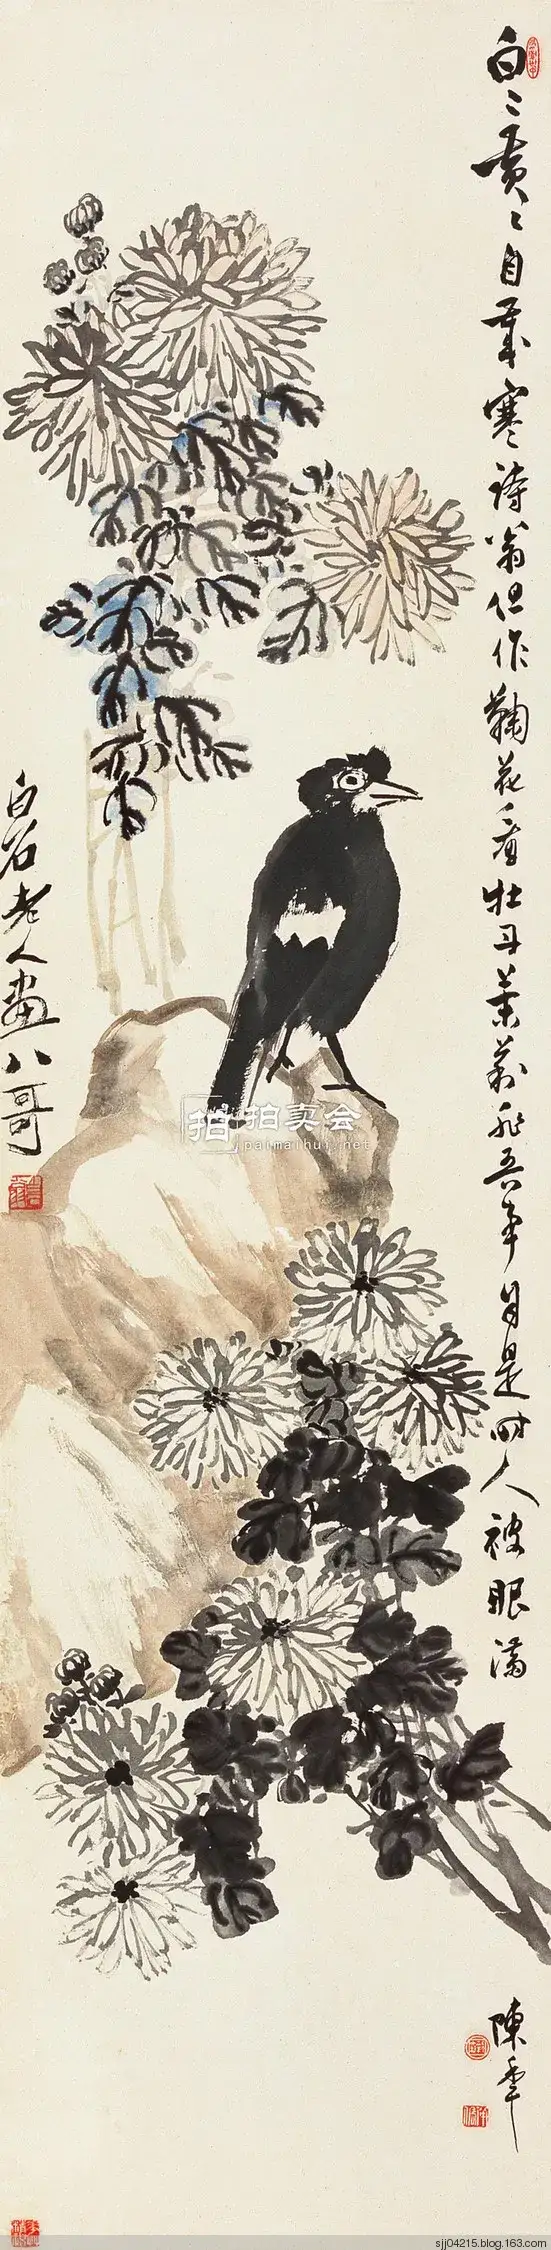 白〻黄〻自寒詩翁但作鞠花看牡丹非吾事自是時人被眼滿
陳年
白石老人畫八哥
拍 拍卖会
paimaihui.net
sjj04215.blog.163.com